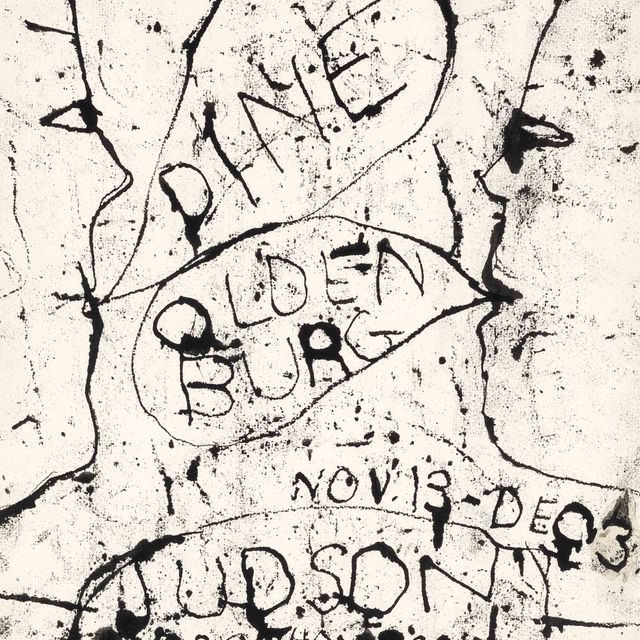 DINE
OLDEN
BURG
NOV.13-DEC 3
JUDSON